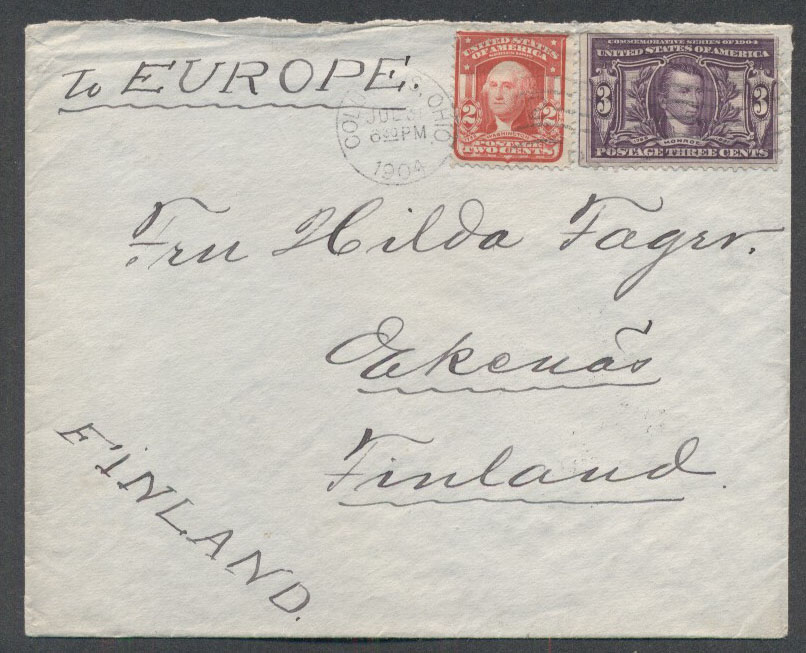 To EUROPE.
COLUMBUS, OHIO.
JUL 31
6 30 PM
1904
UNITED STATES
OF AMERICA
2 2
WASHINGTON
POSTAGE
TWO CENTS
COMMEMORATIVE SERIES OF 1904
UNITED STATES OF AMERICA
3 3
MONROE
POSTAGE THREE CENTS
Fru Hilda Fagerv.
Ekenäs
Finland.
FINLAND.